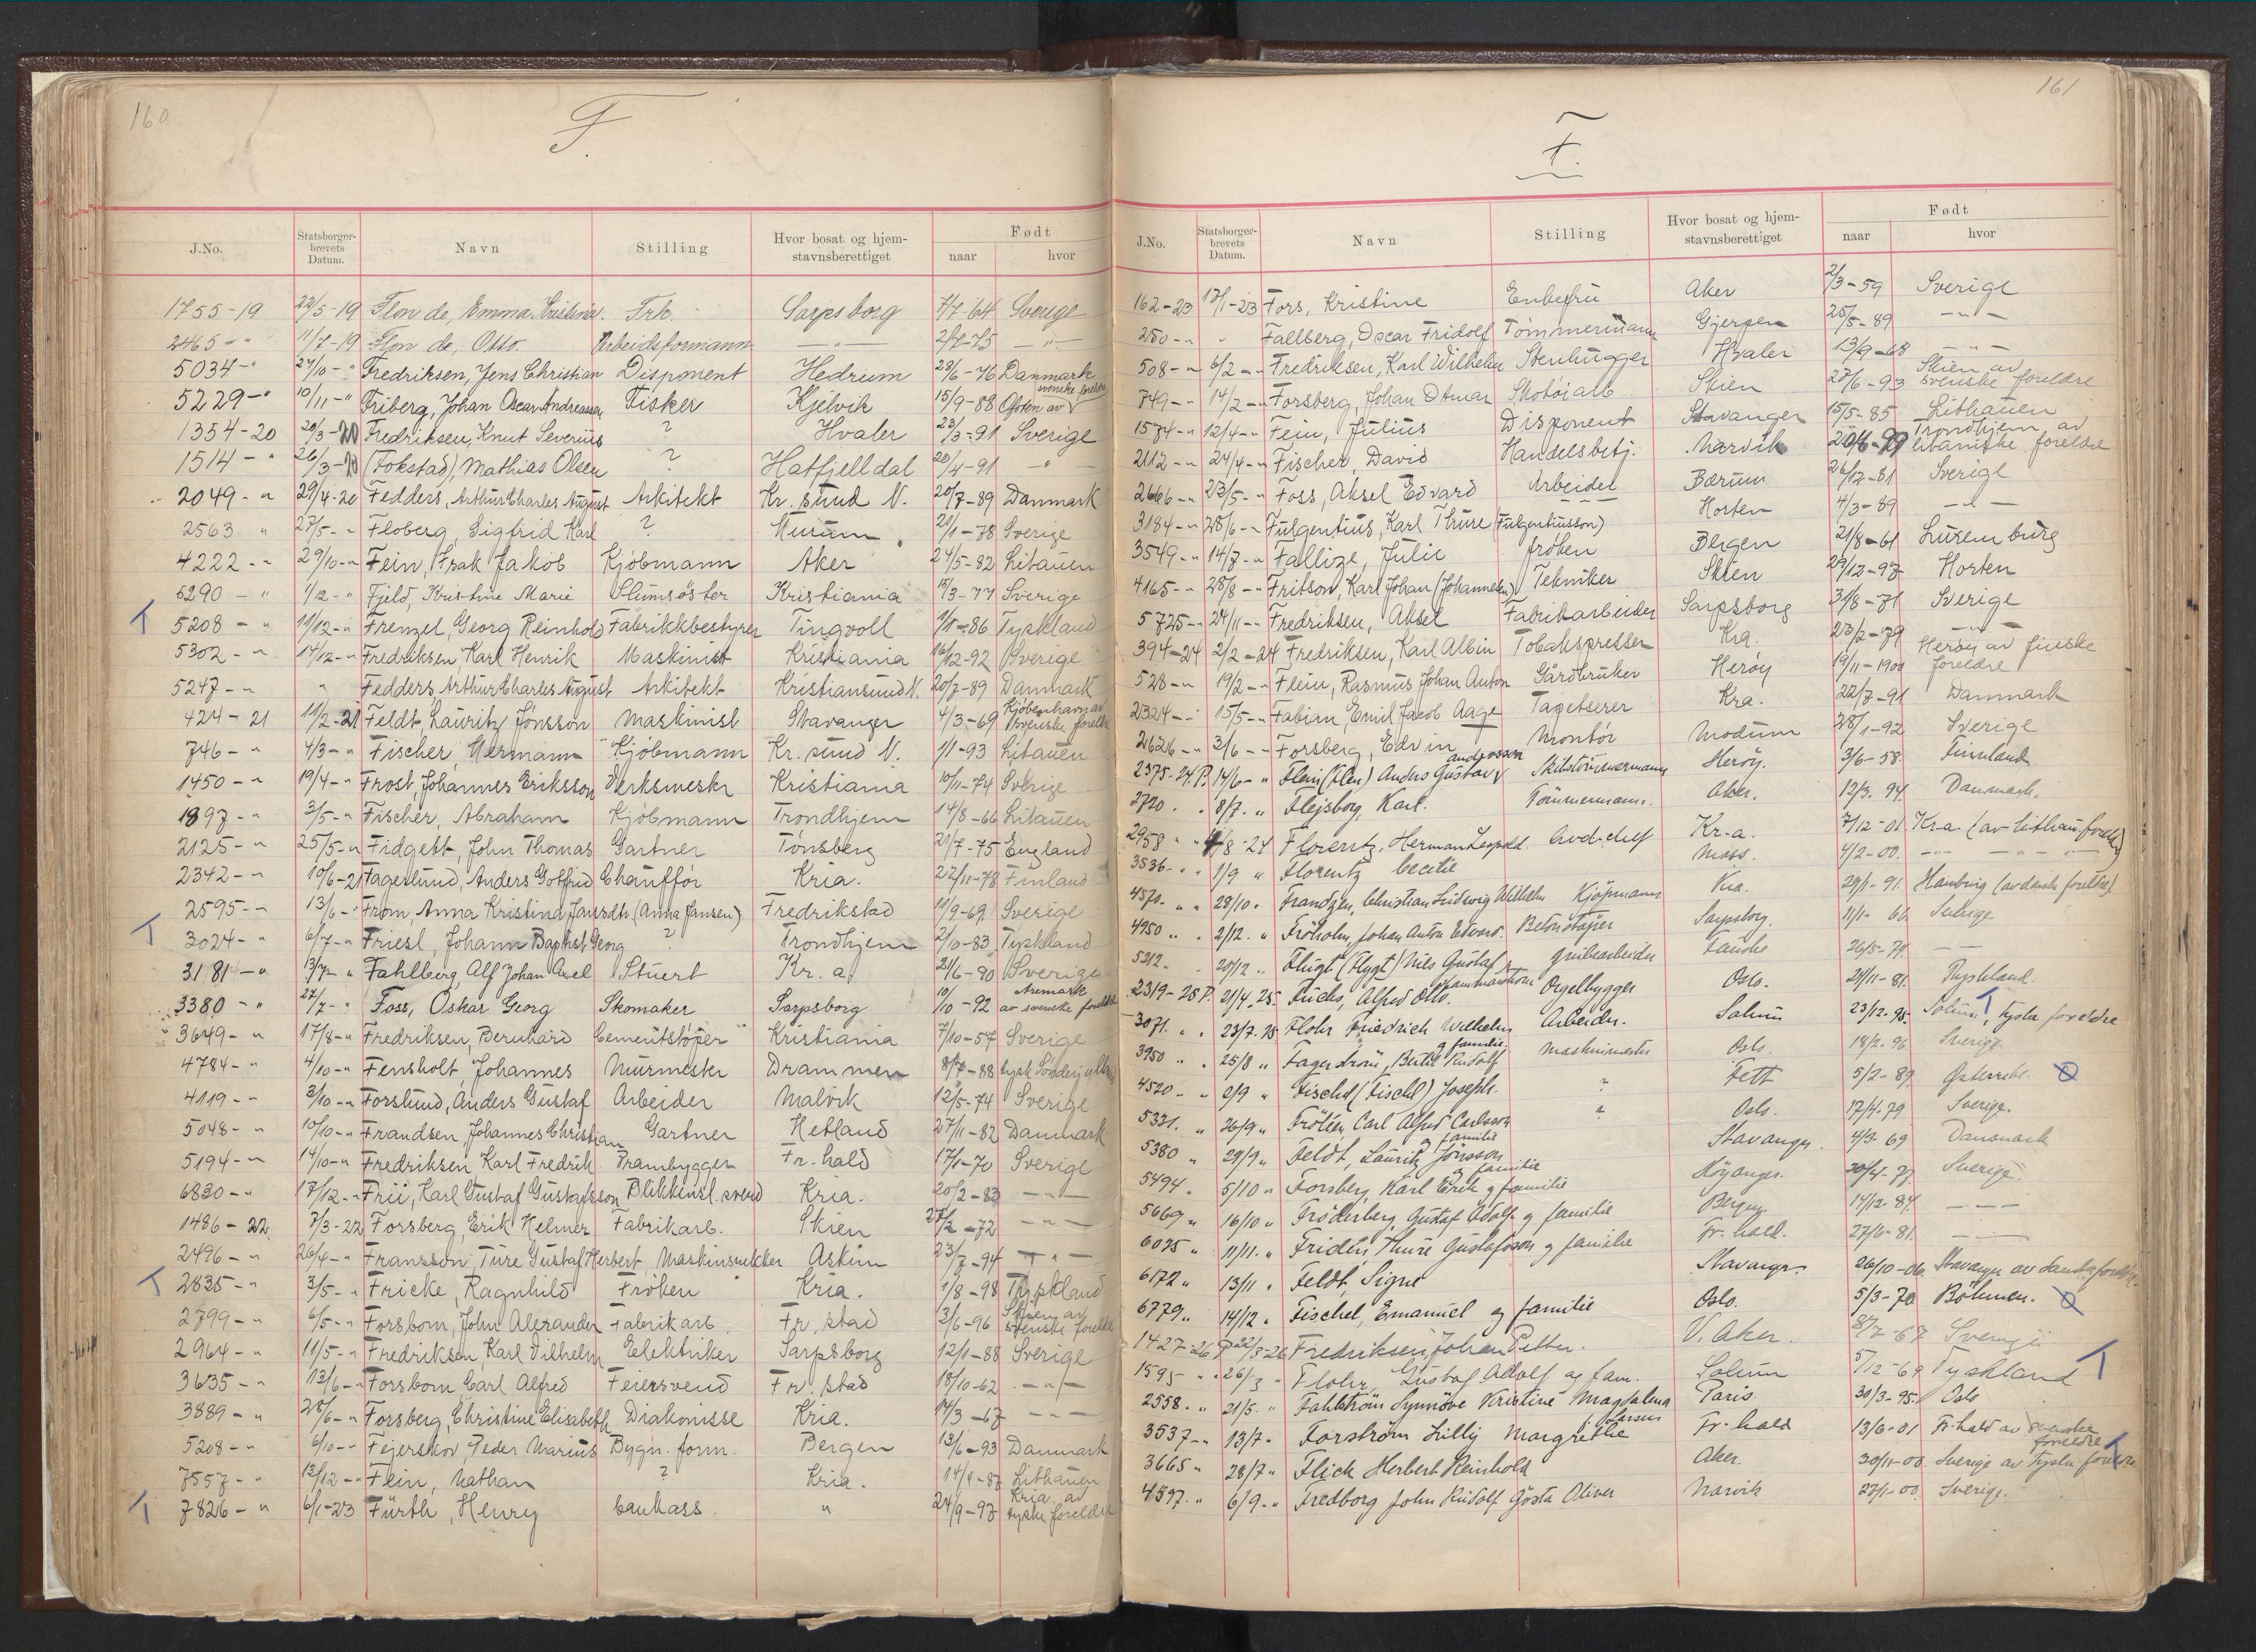 160
F.
J.No. Statsborgerbrevets Datum. Navn Stilling Hvor bosat og hjemstavnsberettiget Født naar hvor
1755-19 22/5-19 Flon de, Emma Kristina. Frk. Sarpsborg 7/7-64 Sverige
2465-" 11/7-19 Flon de, Otto. Arbeidsformann —"— 75 —"—
5034-" 27/10-" Fredriksen, Jens Christian Disponent Hedrum 23/6-76 Danmark
5229-" 10/11-" Friberg, Johan Oscar Andreassen Fisker Kjelvik 15/9-88 Ofoten av svenske foreldre
1354-20 20/3-20 Fredriksen, Knut Severius ? Hvaler 23/3-91 Sverige
1514-" 26/3-20 (Fokstad), Mathias Olsen ? Hatfjelldal 20/4-91 —"—
2049-" 29/4-20 Fedders, Arthur Charles August Arkitekt Kr.sund N. 20/7-89 Danmark
2563 " 27/5-" Floberg, Sigfrid Karl ? Hurum 21/1-78 Sverige
4222-" 29/10-" Fein, Isak Jakob Kjöbmann Aker 24/5-82 Litauen
5290-" 1/12-" Fjeld, Kristine Marie Slumsöster Kristiania 15/3-77 Sverige
T 5208-" 11/12-" Frenzel, Georg Reinhold Fabrikkbestyrer Tingvoll 1/1-86 Tyskland
5302-" 14/12-" Fredriksen Karl Henrik Maskinist Kristiania 16/12-92 Sverige
5247-" " Fedders, Arthur Charles August Arkitekt Kristiansund N. 20/7-89 Danmark
424-21 11/2-21 Feldt, Lauritz Jönsson Maskinist Stavanger 4/3-69 Kjöbenhavn av svenske foreldre
746-" 4/3-" Fischer, Hermann Kjöbmann Kr.sund N. 1/1-93 Litauen
1450-" 19/4-" Frost, Johannes Eriksson Verksmester Kristiania 10/11-74 Sverige
1897-" 3/5-" Fischer, Abraham Kjöbmann Trondhjem 14/8-66 Litauen
2125-" 25/5-" Fidgett, John Thomas Gartner Tönsberg 21/7-75 England
2342-" 10/6-21 Fagerlund, Anders Gotfrid Chaufför Kria. 22/11-78 Finland
2595-" 13/6-" From, Anna Kristina Jansdtr (Anna Jansen) Fredrikstad 11/9-69 Sverige
T 3024-" 6/7-" Friesl, Johann Baptist Georg ? Trondhjem 2/10-83 Tyskland
3181-" 13/7-" Fahlberg, Alf Johan Axel Stuert Kr.a. 21/6-90 Sverige
3380-" 27/7-" Foss, Oskar Georg Skomaker Sarpsborg 10/10-92 Aremark av svenske foreldre
3649-" 17/8-" Fredriksen, Bernhard Cementstöper Kristiania 7/10-57 Sverige
4784-" 4/10-" Fensholt, Johannes Murmester Drammen 8/7-88 tysk Sönderjylland
4119-" 3/10-" Forslund, Anders Gustaf Arbeider Malvik 12/5-74 Sverige
5048-" 10/10-" Frandsen, Johannes Christian Gartner Hetland 27/11-82 Danmark
5194-" 14/10-" Fredriksen Karl Fredrik Prambygger Fr.hald 17/1-70 Sverige
6830-" 17/12-" Frii, Karl Gustaf Gustafsson Blikkensl. svend Kria. 20/2-83 —"—
1486-22 7/3-22 Forsberg, Erik Helmer Fabrikarb. Skien 27/2-72 —"—
2496-" 26/4-" Fransson, Ture Gustaf Herbert Maskinsnekker Askim 23/7-94 —"—
T 2835-" 3/5-" Fricke, Ragnhild Fröken Kria. 1/8-98 Tyskland
2799-" 6/5-" Forsbom, John Alexander Fabrikarb. Fr.stad 3/6-96 Skien av svenske foreldre
2964-" 11/5-" Fredriksen, Karl Vilhelm Elektriker Sarpsborg 12/1-88 Sverige
3635-" 13/6-" Forsbom, Carl Alfred Feiersvend Fr.stad 18/10-62 —"—
3889-" 28/6-" Forsberg, Christine Elisabeth Diakonisse Kria. 14/3-67 —"—
5208-" 6/10-" Fejerskov, Peder Marius Bygn.form. Bergen 13/6-93 Danmark
7557-" 13/12-" Fein, Nathan ? Kria. 14/4-87 Lithauen
T 7826-" 6/1-23 Fürth, Henry bankass. " 24/9-97 Kria. av tyske foreldre
161
F.
J.No. Statsborgerbrevets Datum. Navn Stilling Hvor bosat og hjemstavnsberettiget Født naar hvor
162-23 13/1-23 Fors, Kristine Enkefru Aker 2/3-59 Sverige
250-" " Fallberg, Oscar Fridolf Tömmermann Gjerpen 25/5-89 —"—
508-" 6/2-" Fredriksen, Karl Wilhelm Stenhugger Hvaler 13/9-68 —"—
749-" 14/2-" Forsberg, Johan Otmar Skotöjarb Skien 27/6-93 Skien av svenske foreldre
1574-" 12/4-" Fein, Julius Disponent Stavanger 15/5-85 Lithauen
2112-" 24/4-" Fischer, David Handelsbetj. Narvik 20/6-99 Trondhjem av litauiske foreldre
2666-" 23/5-" Foss, Aksel Edvard Arbeider Bærum 26/12-81 Sverige
3184-" 28/6-" Fulgentius, Karl Thure (Fulgentiusson) Horten 4/3-89 —"—
3549-" 14/7-" Fallize, Julie fröken Bergen 21/8-61 Luxemburg
4165-" 28/8-" Fritson, Karl Johan (Johannesen) Tekniker Skien 29/12-97 Horten
5725-" 24/11-" Fredriksen, Aksel Fabrikarbeider Sarpsborg 31/8-71 Sverige
394-24 2/2-24 Fredriksen, Karl Albin Tobakspresser Kra. 23/2-79 —"—
528-" 19/2-" Flein, Rasmus Johan Anton Gårdbruker Heröy 19/11-1900 Heröy av finske foreldre
2324-" 15/5-" Fabian, Emil Jacob Aage Tapetserer Kra. 22/7-91 Danmark
2626-" 3/6-" Forsberg, Edvin Montör Modum 28/1-92 Sverige
2375-24 P. 14/6-" Flein (Flen) Anders Gustav Andersson Skibstömmermann Heröy. 3/6-58 Finnland
2720. " 8/7. " Flejsborg, Karl. Tömmermann. Aker. 12/3. 94. Danmark.
2958 " " /8-24 Florentz, Herman Leopold. Avd.chef Kr.a. 7/12-01 Kra. (av lithau. foreldre)
3536. " " 1/9 " Florentz Cecilie Moss. 4/2-00. —"—
4570. " " 28/10. " Frandzen, Christian Ludwig Wilhelm Kjöpmann Kra. 29/1-91. Hamburg (av danske foreldre)
4950 " " 2/12. " Fröholm, Johan Anton Edvard. Betonstöper Sarpsborg. 11/1-61 Sverige
5212. " 20/12 " Flugt (Flygt) Nils Gustaf Hammarström grubearbeider Fauske 26/5-74. ——
2319-25 P. 21/4.25. Fuchs, Alfred Otto. Orgelbygger Oslo. 24/11-81. Tyskland.
3071. " " 23/7.25 Flohr Friedrich Wilhelm Arbeider. Solum 23/12-95. Solum, tyske foreldre T
3950 " " 25/8 " Fagerström, Bertil Rudolf og familie. Maskinmester Oslo. 18/2-96. Sverige
4520 " " 2/9 " Fischel (Fischl) Joseph. ? Fett 5/2-89 Østerrike.
5331. " 26/9 " Frölén, Carl Alfred Carlsson ? Oslo. 17/4-79 Sverige.
5380 " 29/9 " Feldt, Lauritz Jönsson og familie Stavanger. 4/3-69 Danmark
5494. " 5/10 " Forsberg, Karl Erik og familie Höyanger. 20/4-77. Sverige.
5669 " 16/10 " Fröderberg, Gustaf Adolf og familie Bergen 14/12-84. ——
6025 " 11/11. " Fridén, Thure Gustafsson og familie Fr.hald. 27/6-81. ——
6172 " 13/11 " Feldt, Signe Stavanger. 26/10-06. Stavanger av danske foreldre
6779 " 14/12 " Fischel, Emanuel og familie Oslo. 5/3-70 Böhmen.
1427-26 P 22/3-26 Fredriksen Johan Petter. V. Aker. 8/7-67 Sverige
1595 " " 26/3 " Flohr, Gustav Adolf og fam. Solum 5/12-69 Tyskland T
2558. " 21/5. " Fahlström Synnöve Kristine Magdalena Paris 30/3-95. Oslo
3537-" 13/7-" Forström Lilly Margrethe Larsen Fr.hald 13/6-01 Fr.hald av svenske foreldre
3665 " 28/7 " Flick Herbert Reinhold Aker. 30/11-00. Sverige av tyske foreldre T
4597. " 6/9-" Fredborg John Rudolf Gösta Oliver Narvik 27/1-00. Sverige.